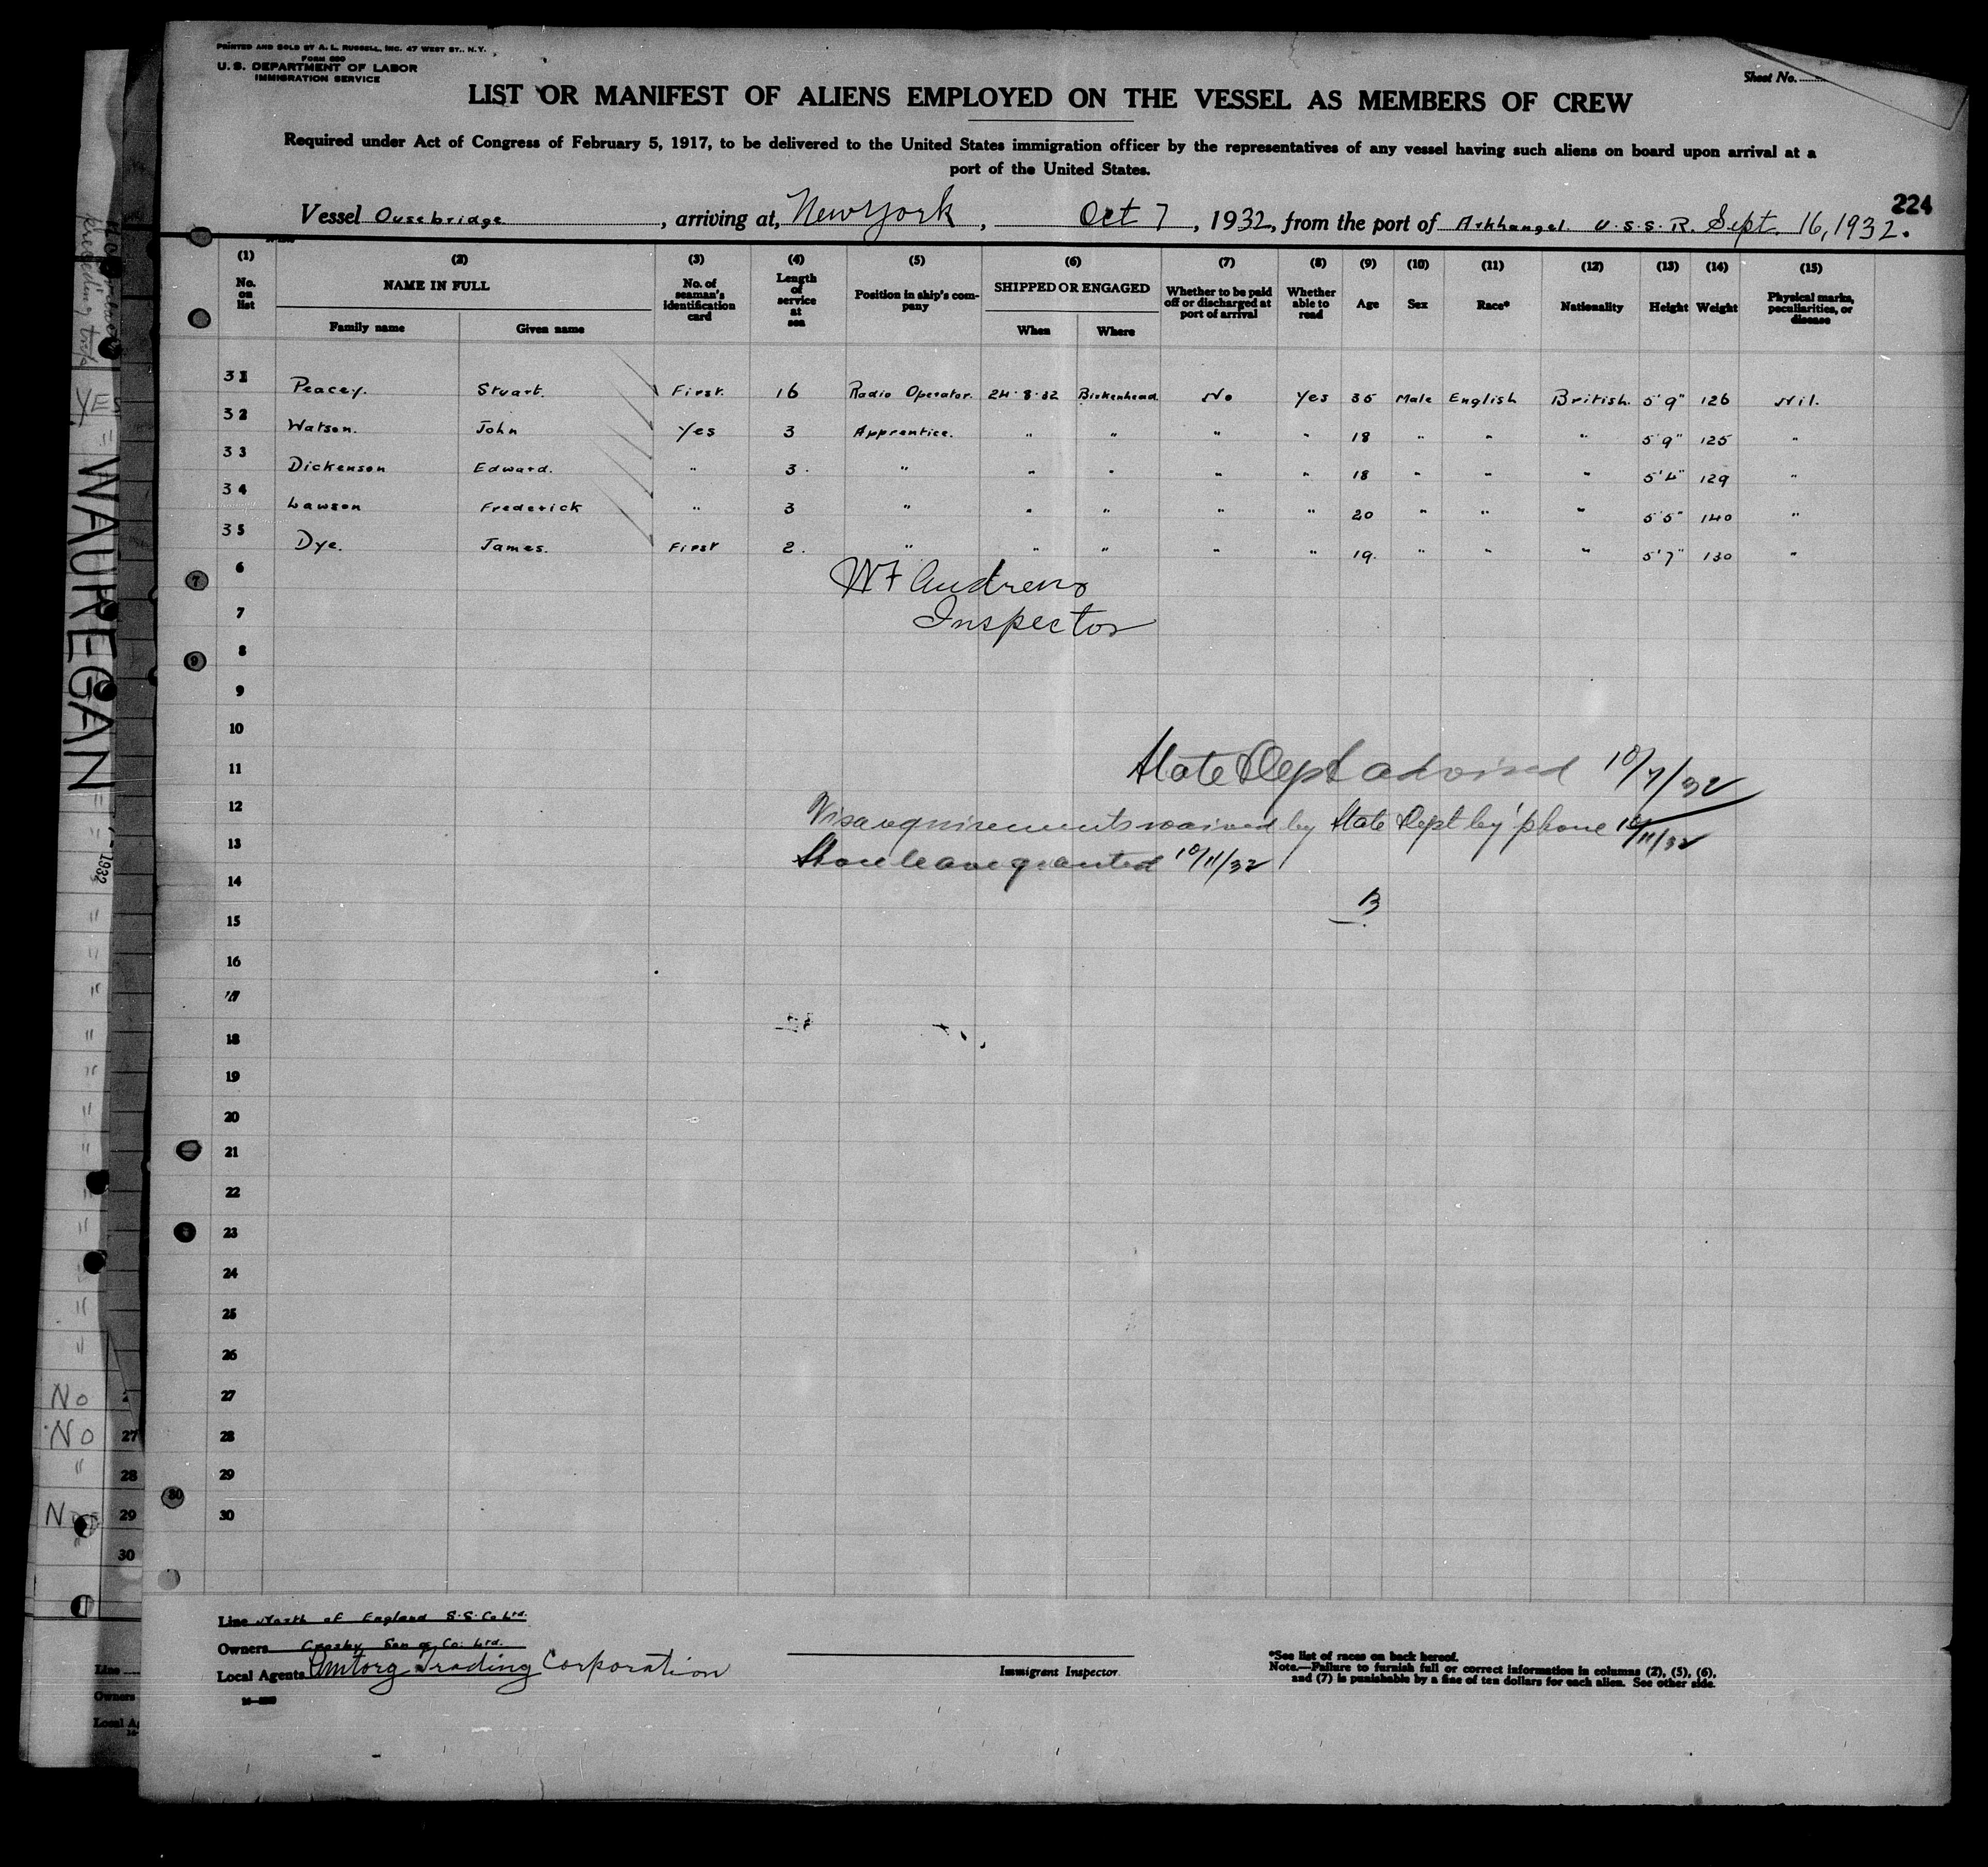 PRINTED AND SOLD BY A. L. RUSSELL, INC. 47 WEST ST., N.Y.
FORM 680
U. S. DEPARTMENT OF LABOR
IMMIGRATION SERVICE
Sheet No.
LIST OR MANIFEST OF ALIENS EMPLOYED ON THE VESSEL AS MEMBERS OF CREW
Required under Act of Congress of February 5, 1917, to be delivered to the United States immigration officer by the representatives of any vessel having such aliens on board upon arrival at a
port of the United States.
224
Vessel Ousebridge, arriving at, New York, Oct 7, 1932, from the port of Arkhangel. U.S.S.R. Sept. 16, 1932.
(1) (2) (3) (4) (5) (6) (7) (8) (9) (10) (11) (12) (13) (14) (15)
No. on list NAME IN FULL No. of seaman's identification card Length of service at sea Position in ship's company SHIPPED OR ENGAGED Whether to be paid off or discharged at port of arrival Whether able to read Age Sex Race* Nationality Height Weight Physical marks, peculiarities, or disease
Family name Given name When Where
31 Peacey. Stuart. First. 16 Radio Operator. 24.8.32 Birkenhead No Yes 35 Male English British. 5'9" 126 Nil.
32 Watson. John Yes 3 Apprentice. " " " " 18 " " " 5'9" 125 "
33 Dickenson Edward. " 3. " " " " " 18 " " " 5'4" 129 "
34 Lawson Frederick " 3 " " " " " 20 " " " 5'5" 140 "
35 Dye. James. First 2. " " " " " 19. " " " 5'7" 130 "
6
W F Andrews
7
Inspector
8
9
10
11
State Dept advised 10/7/32
12
Visa requirements waived by State Dept by 'phone 10/11/32
13
Shore leave granted 10/11/32
14
B
15
16
17
18
19
20
21
22
23
24
25
26
27
28
29
30
Line North of England S.S. Co Ltd.
Owners Crosby Son & Co. Ltd.
Local Agents Amtorg Trading Corporation
Immigrant Inspector.
*See list of races on back hereof.
Note.—Failure to furnish full or correct information in columns (2), (5), (6),
and (7) is punishable by a fine of ten dollars for each alien. See other side.
YES
WAUREGAN
1932
No
No
27
28
29
30
Line
Owners